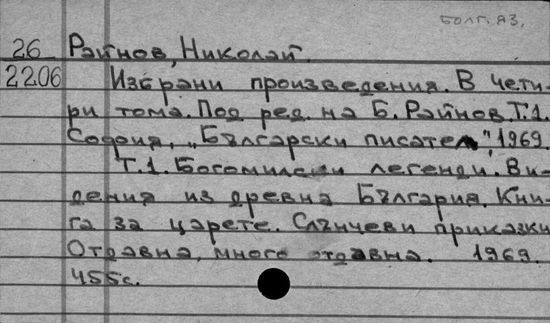 Болг. яз.
26 Райнов, Николай.
2206 Избрани произведения. В чети-
ри тома. Под ред. на Б. Райнов. Т.1.
София, „Български писател", 1969.
Т.1. Богомилски легенди. Ви-
дения из древна България. Кни-
га за царете. Слънчеви приказки.
Отдавна, много отдавна. 1969.
455с.